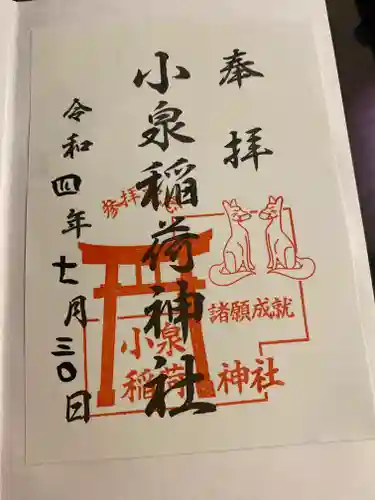 奉拝
小泉稲荷神社
令和四年十一月三〇日
参拝
諸願成就
小泉
稲荷神社